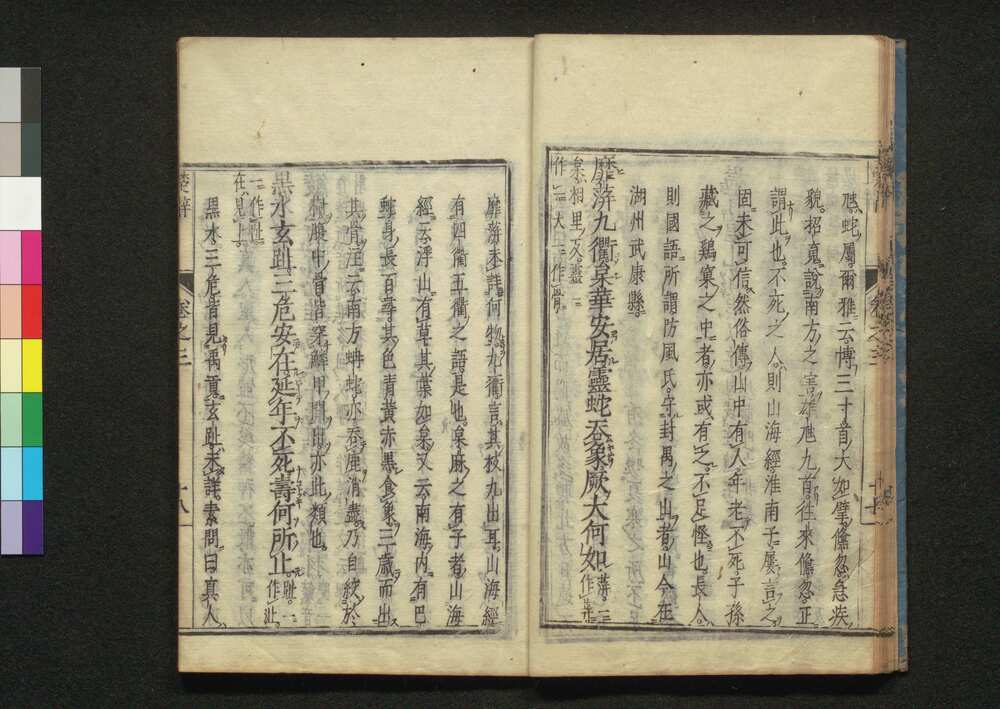 虺蛇屬爾雅云博三寸首大如擘儵忽急疾
貌招䰟說南方之害雄虺九首往來儵忽正
謂此也不死之人則山海經淮南子屢言之
固未可信然俗傳山中有人年老不死子孫
藏之鷄窠之中者亦或有之不足怪也長人
則國語所謂防風氏守封禺之山者山今在
湖州武康縣
靡蓱九衢枲華安居靈蛇吞象厥大何如
蓱一作荓
枲相里反靈一
作一大一作骨
靡蓱未詳何物九衢言其枝九出耳山海經
有四衢五衢之語是也枲麻之有子者山海
經云浮山有草其葉如枲又云南海內有巴
蛇身長百尋其色青黃赤黑食象三歲而出
其骨注云南方蚺蛇亦吞鹿消盡乃自絞於
樹腹中骨皆穿鱗甲間出亦此類也
黑水玄趾三危安在延年不死壽何所止
趾一作沚
一作阯
在見上
黑水三危皆見禹貢玄趾未詳素問曰眞人
楚辭
卷之三
十八